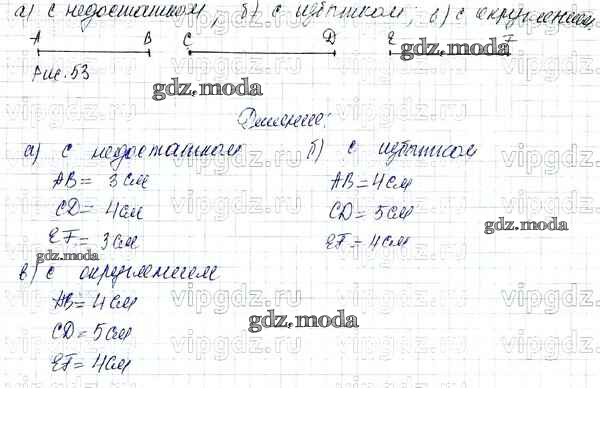 а) с недостатком; б) с избытком; в) с округлением.
A B C D E F
Рис. 53
gdz.moda
Решение:
а) с недостатком б) с избытком
AB = 3 см AB = 4 см
CD = 4 см CD = 5 см
EF = 3 см EF = 4 см
gdz.moda
gdz.moda
в) с округлением
AB = 4 см
CD = 5 см
EF = 4 см
gdz.moda
vipgdz.ru